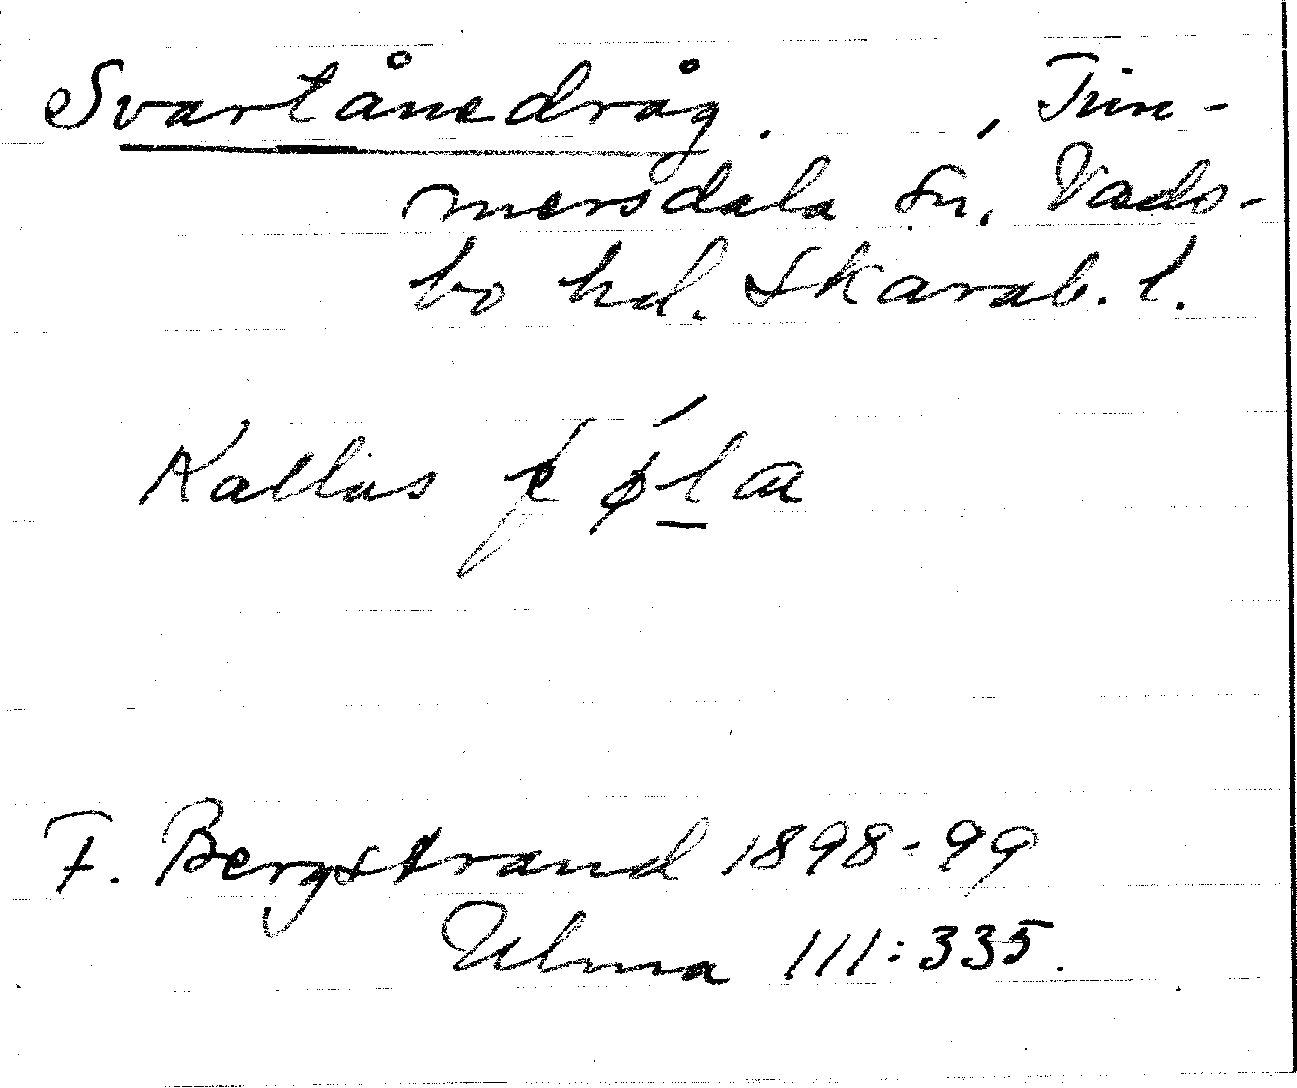 Svartånedråg. , Tim-
mersdala sn, Vads-
bo hd. Skarab. l.
Kallas
F. Bergstrand 1898-99
Ulma 111:335.